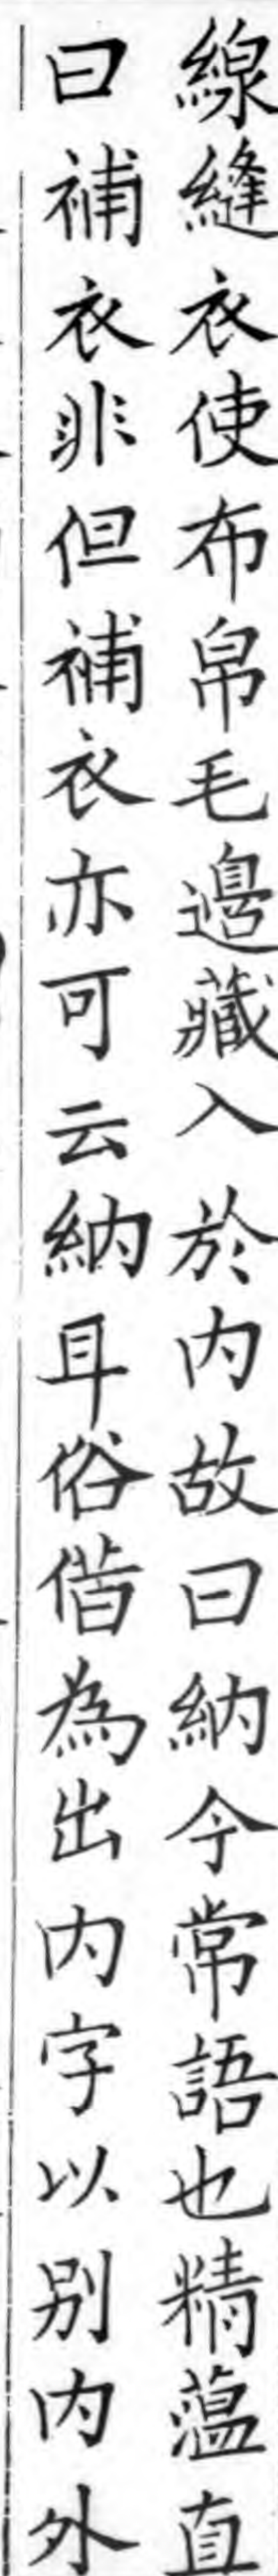 線縫衣使布帛毛邊藏入於内故曰納今常語也精蕰直
曰補衣非但補衣亦可云納耳俗偺為出内字以别内外